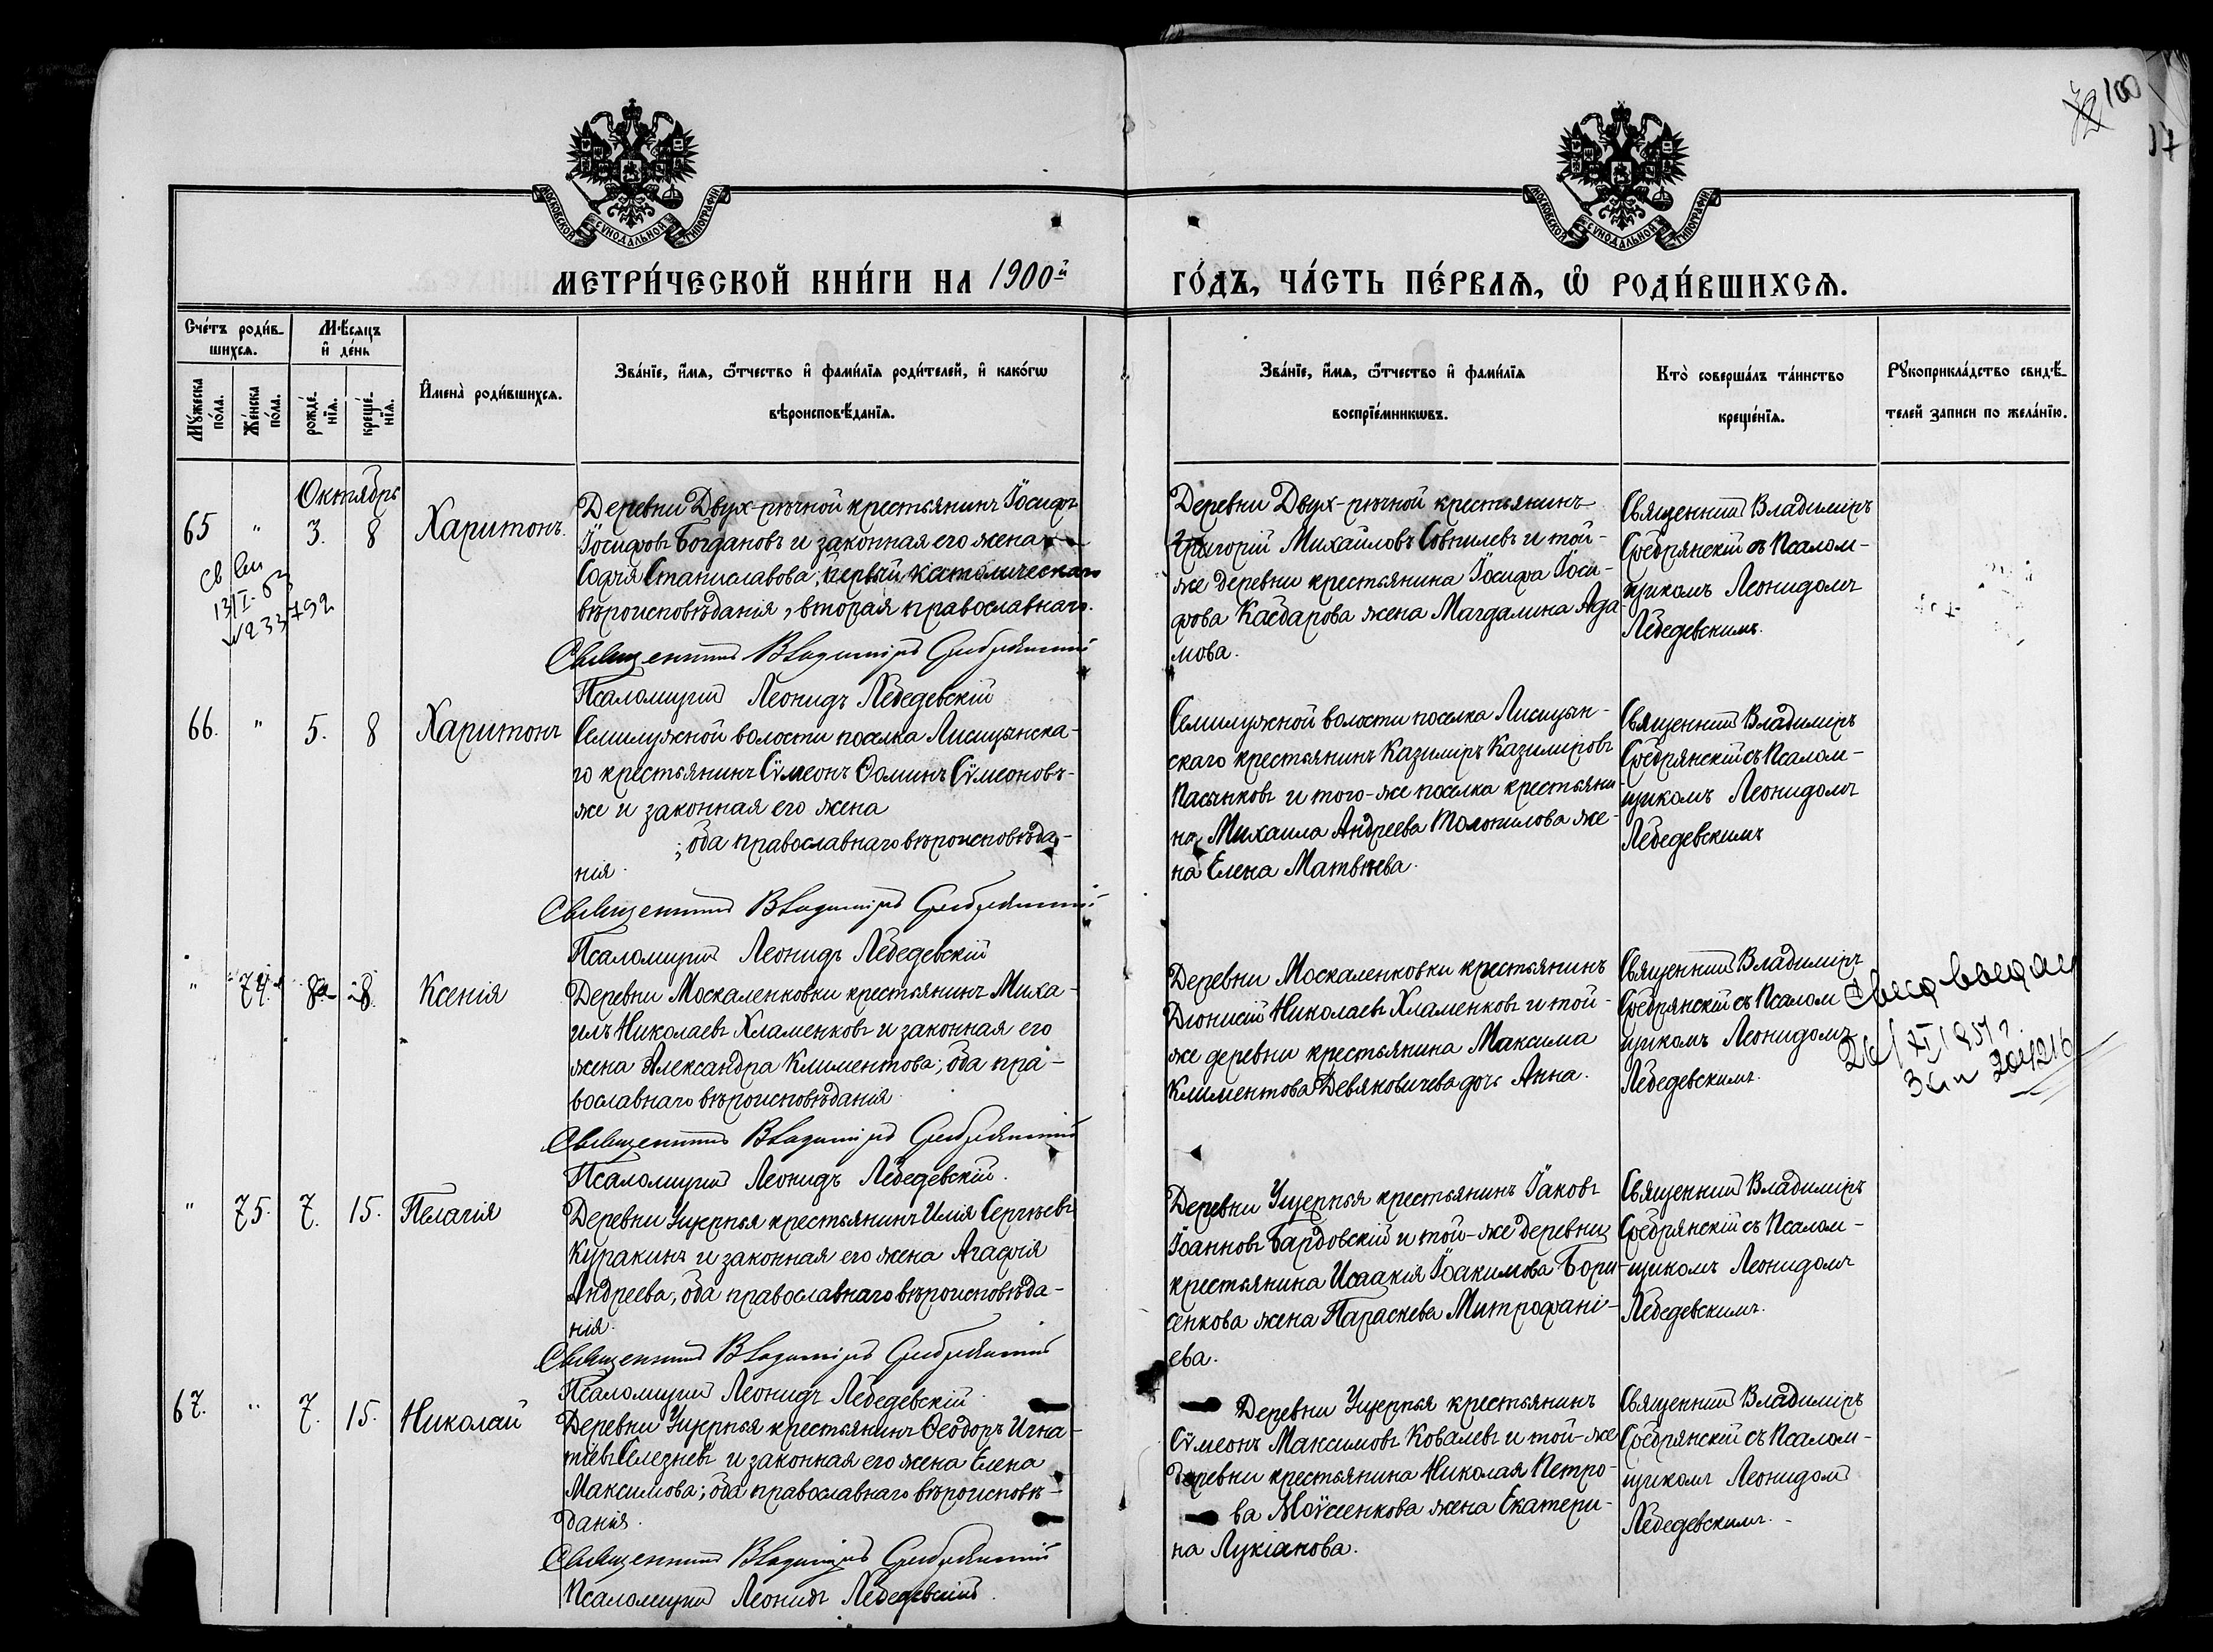 100
МОСКОВСКОЙ СѴНОДАЛЬНОЙ ТИПОГРАФІИ
МОСКОВСКОЙ СѴНОДАЛЬНОЙ ТИПОГРАФІИ
МЕТРИ́ЧЕСКОЙ КНИ́ГИ НА 1900й
ГО́ДЪ, ЧА́СТЬ ПЕ́РВАѦ, Ѡ҆ РОДИ́ВШИХСѦ.
Сче́тъ роди́в-
шихсѧ.
Мѣ́сяцъ
и҆ де́нь
Мꙋ́жеска
по́ла.
Же́нска
по́ла.
рожде́-
нїѧ.
креще́-
нїѧ.
И҆мена̀ роди́вшихсѧ.
Зва́нїе, и҆́мѧ, ѻ҆́тчество и҆ фами́лїѧ роди́телей, и҆ како́гѡ
вѣроисповѣ́данїѧ.
Зва́нїе, и҆́мѧ, ѻ҆́тчество и҆ фами́лїѧ
воспрїе́мникѡвъ.
Кто̀ соверша́лъ та́инство
креще́нїѧ.
Рꙋкоприкла́дство свидѣ́-
телей записи по жела́нїю.
Октябрь
65 " 3. 8 Харитонъ.
Деревни Двух-рѣчной крестьянинъ Іосифъ
Іосифовъ Богдановъ и законная его жена
Софія Станиславова; первый католическаго
вѣроисповѣданія, вторая православнаго.
Священникъ Владиміръ Сребрянскій
Псаломщикъ Леонидъ Лебедевскій
Деревни Двух-рѣчной крестьянинъ
Григорій Михайловъ Совпилевъ и той-
же деревни крестьянина Іосифа Іоси-
фова Касбарова жена Магдалина Ада
мова.
Священникъ Владиміръ
Сребрянскій съ Псалом-
щикомъ Леонидомъ
Лебедевскимъ.
13/I-53
66. " 5. 8 Харитонъ
Семилужной волости поселка Лисицынска-
го крестьянинъ Сѵмеонъ Ѳоминъ Сѵмеоновъ-
же и законная его жена
; оба православнаго вѣроисповѣда-
нія.
Священникъ Владиміръ Сребрянскій
Псаломщикъ Леонидъ Лебедевскій
Семилужной волости поселка Лисицын-
скаго крестьянинъ Казимиръ Казимировъ
Пасынковъ и того-же поселка крестьяни-
на Михаила Андреева Толопилова же-
на Елена Матвѣева.
Священникъ Владиміръ
Сребрянскій съ Псалом-
щикомъ Леонидомъ
Лебедевскимъ
" 74. 8. Ксенія
Деревни Москаленковки крестьянинъ Миха-
илъ Николаевъ Хламенковъ и законная его
жена Александра Климентова; оба пра-
вославнаго вѣроисповѣданія
Священникъ Владиміръ Сребрянскій
Псаломщикъ Леонидъ Лебедевскій.
Деревни Москаленковки крестьянинъ
Діонисій Николаевъ Хламенковъ и той-
же деревни крестьянина Максима
Климентова Девяковичева дочь Анна.
Священникъ Владиміръ
Сребрянскій съ Псалом
щикомъ Леонидомъ
Лебедевскимъ.
" 75. 7. 15. Пелагія
Деревни Ущерпья крестьянинъ Илія Сергѣевъ
Куракинъ и законная его жена Агафія
Андреева; оба православнаго вѣроисповѣда-
нія.
Священникъ Владиміръ Сребрянскій
Псаломщикъ Леонидъ Лебедевскій.
Деревни Ущерпья крестьянинъ Іаковъ
Іоанновъ Бардовскій и той-же деревни
крестьянина Исаакія Іоакимова Бори-
сенкова жена Параскева Митрофані-
ева.
Священникъ Владиміръ
Сребрянскій съ Псалом-
щикомъ Леонидомъ
Лебедевскимъ.
67. " 7. 15. Николай
Деревни Ущерпья крестьянинъ Ѳеодоръ Игна-
тіевъ Селезневъ и законная его жена Елена
Максимова; оба православнаго вѣроисповѣ-
данія.
Священникъ Владиміръ Сребрянскій
Псаломщикъ Леонидъ Лебедевскій.
Деревни Ущерпья крестьянинъ
Сѵмеонъ Максимовъ Ковалевъ и той-же
деревни крестьянина Николая Петро-
ва Моѵсеенкова жена Екатери-
на Лукіанова.
Священникъ Владиміръ
Сребрянскій съ Псалом-
щикомъ Леонидом
Лебедевскимъ.